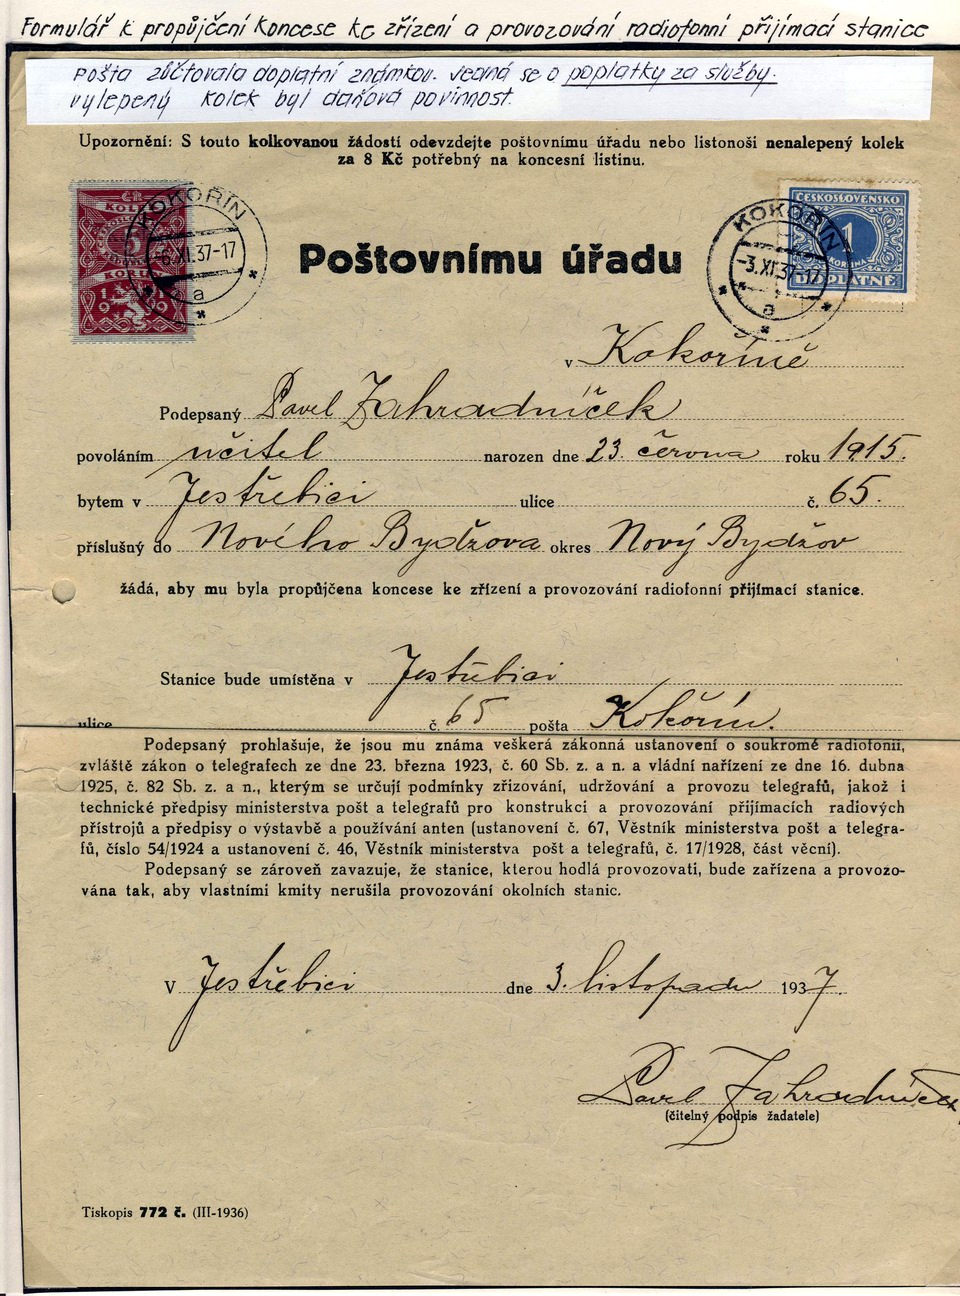 Formulář k propůjčení koncese ke zřízení a provozování radiofonní přijímací stanice
Pošta zúčtovala doplatní známkou. Jedná se o poplatky za služby.
vylepený kolek byl daňová povinnost.
Upozornění: S touto kolkovanou žádostí odevzdejte poštovnímu úřadu nebo listonoši nenalepený kolek
za 8 Kč potřebný na koncesní listinu.
ČR
KOLEK
5
KORUN
1919
KOKOŘÍN
-6.XI.37-17
a
ČESKOSLOVENSKO
1
KORUNA
DOPLATNÉ
KOKOŘÍN
-3.XI.37-17
a
Poštovnímu úřadu
v Kokoříně
Podepsaný Pavel Zahradníček
povoláním učitel narozen dne 23. června roku 1915.
bytem v Jestřebici ulice č. 65.
příslušný do Nového Bydžova okres Nový Bydžov
žádá, aby mu byla propůjčena koncese ke zřízení a provozování radiofonní přijímací stanice.
Stanice bude umístěna v Jestřebici
ulice č. 65 pošta Kokořín.
Podepsaný prohlašuje, že jsou mu známa veškerá zákonná ustanovení o soukromé radiofonii,
zvláště zákon o telegrafech ze dne 23. března 1923, č. 60 Sb. z. a n. a vládní nařízení ze dne 16. dubna
1925, č. 82 Sb. z. a n., kterým se určují podmínky zřizování, udržování a provozu telegrafů, jakož i
technické předpisy ministerstva pošt a telegrafů pro konstrukci a provozování přijímacích radiových
přístrojů a předpisy o výstavbě a používání anten (ustanovení č. 67, Věstník ministerstva pošt a telegra-
fů, číslo 54/1924 a ustanovení č. 46, Věstník ministerstva pošt a telegrafů, č. 17/1928, část věcní).
Podepsaný se zároveň zavazuje, že stanice, kterou hodlá provozovati, bude zařízena a provozo-
vána tak, aby vlastními kmity nerušila provozování okolních stanic.
V Jestřebici dne 3. listopadu 1937.
Pavel Zahradníček
(čitelný podpis žadatele)
Tiskopis 772 č. (III-1936)